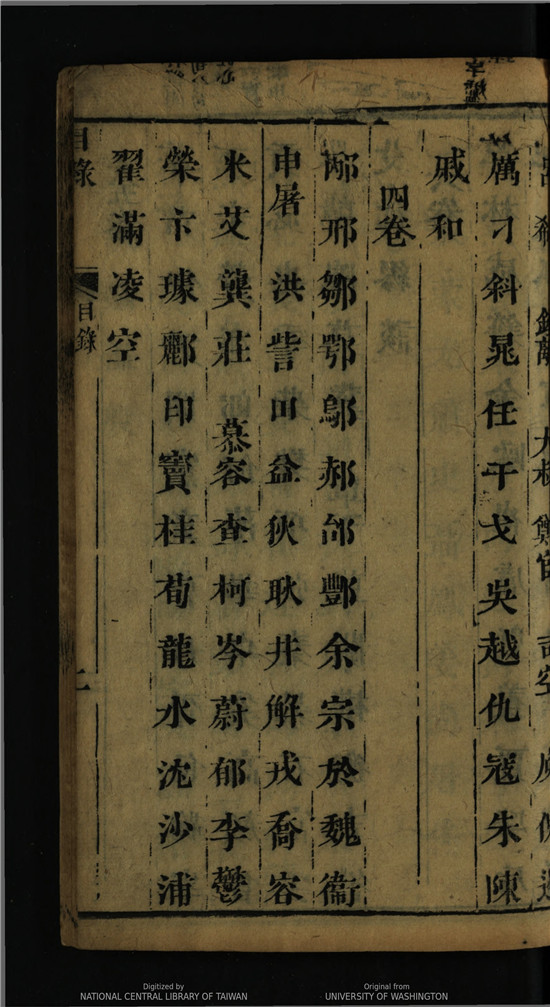 厲刁斜晁任干戈吳越仇寇朱陳
戚和
四卷
邴邢鄒鄂鄔郝郃酆余宗於魏衞
申屠洪訾田益狄耿井解戎喬容
米艾龔莊慕容查柯岑蔚郁李鬱
榮卞璩酈印竇桂荀龍水沈沙浦
翟滿凌空
目錄
目錄
二
Digitized by
NATIONAL CENTRAL LIBRARY OF TAIWAN
Original from
UNIVERSITY OF WASHINGTON